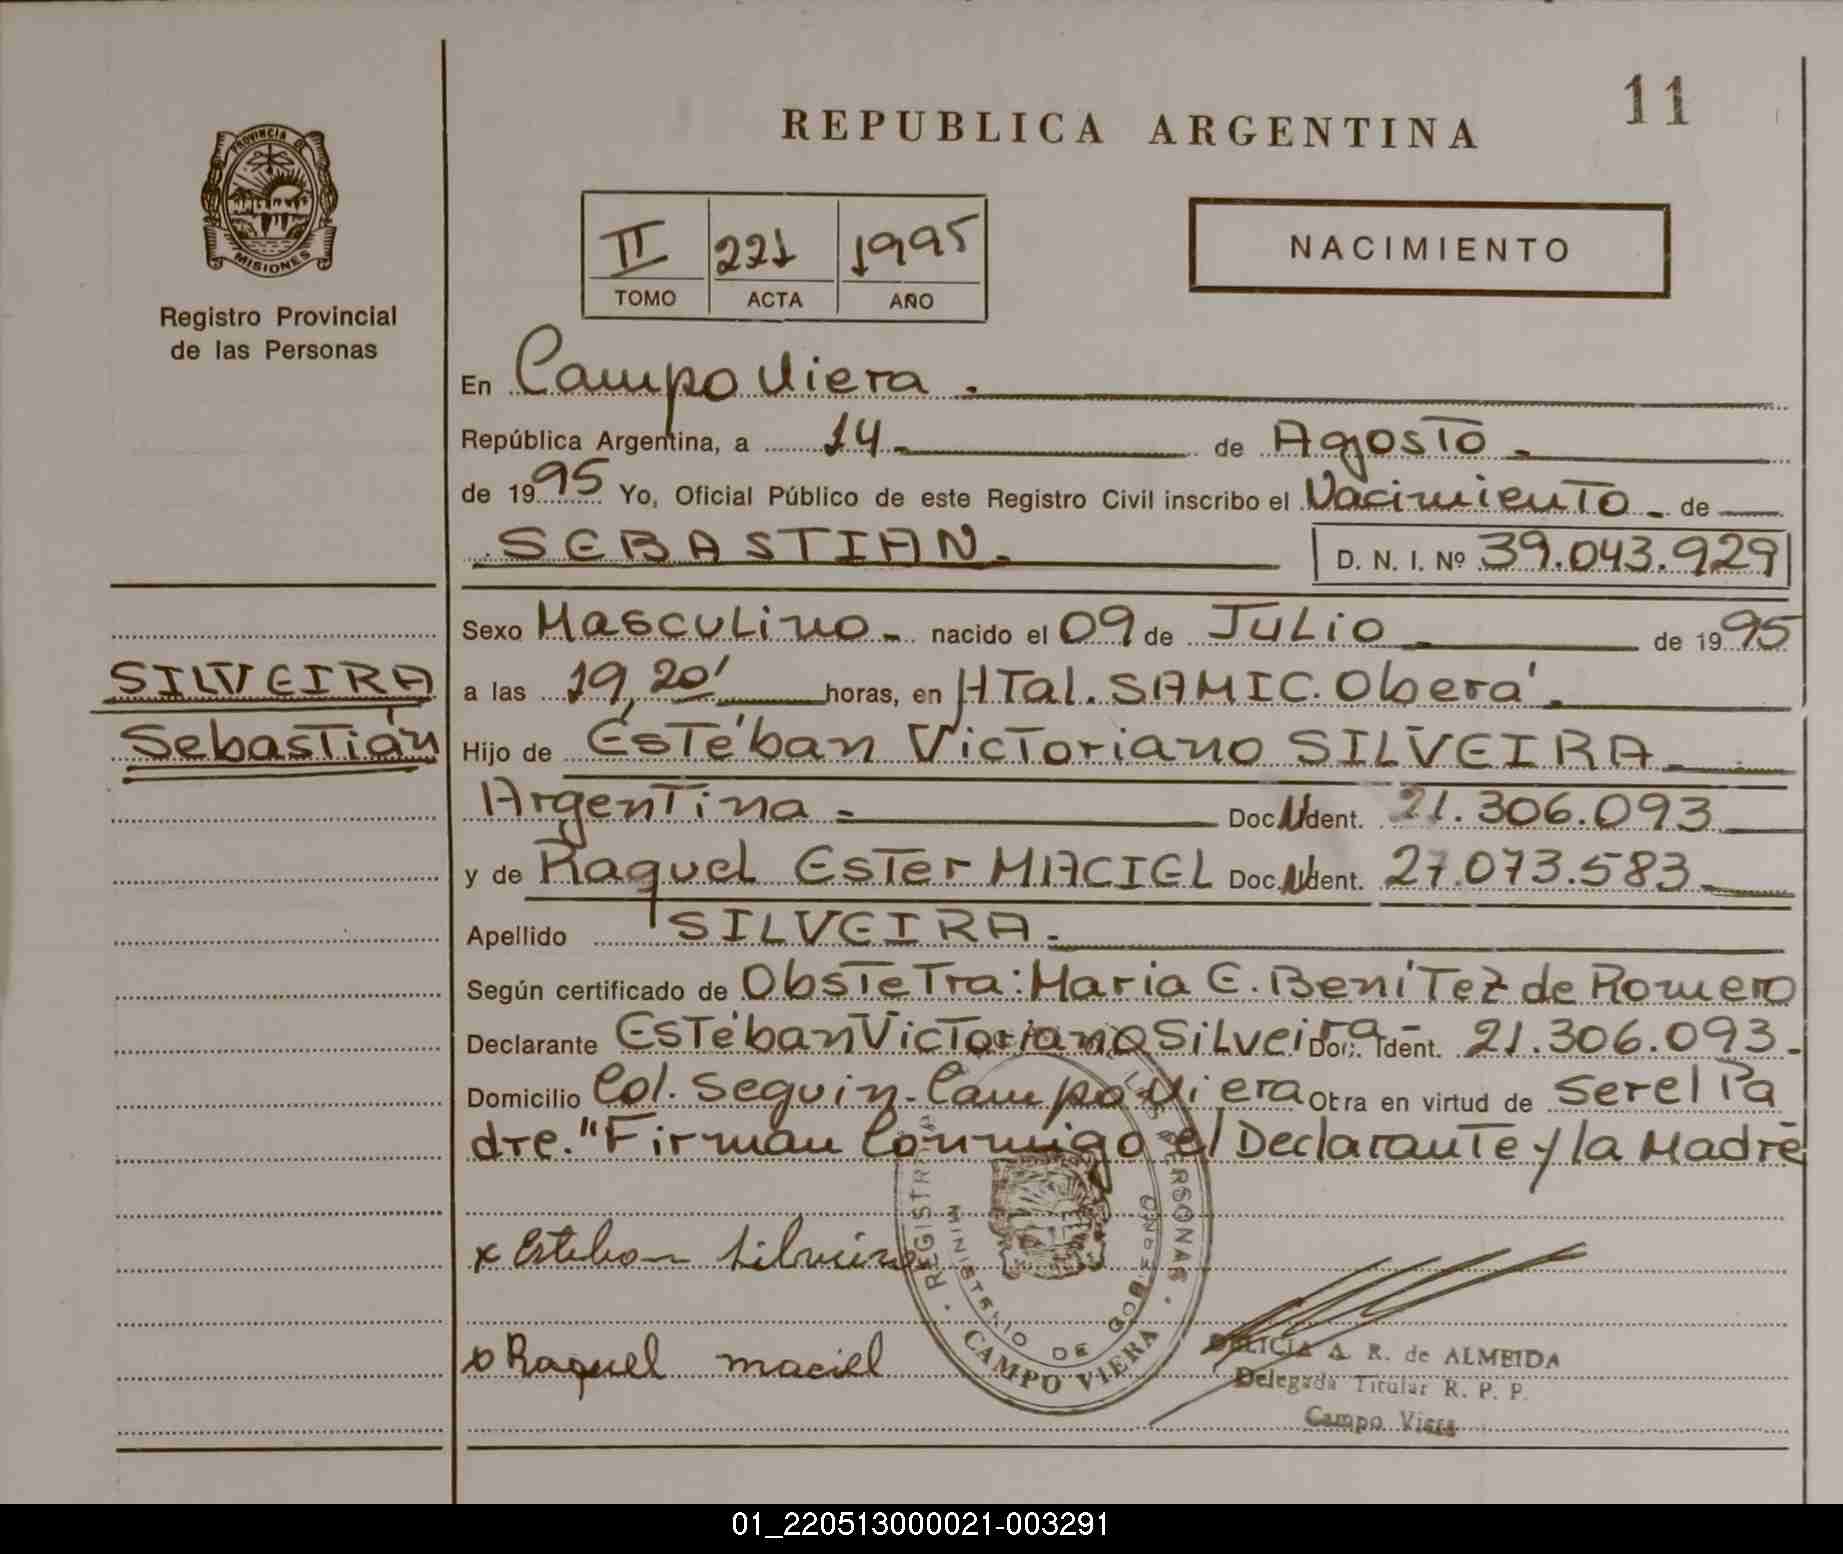 11
REPUBLICA ARGENTINA
PROVINCIA DE
MISIONES
Registro Provincial
de las Personas
II 221 1995
TOMO ACTA AÑO
NACIMIENTO
En Campo Viera.
República Argentina, a 14 de Agosto
de 1995 Yo, Oficial Público de este Registro Civil inscribo el Nacimiento de
SEBASTIAN.
D. N. I. Nº 39.043.929
SILVEIRA
Sebastián
Sexo Masculino nacido el 09 de Julio de 1995
a las 19,20' horas, en HTal. SAMIC. Oberá.
Hijo de Estéban Victoriano SILVEIRA
Argentina Doc. N Ident. 21.306.093
y de Raquel Ester MACIEL Doc. N Ident. 27.073.583
Apellido SILVEIRA.
Según certificado de Obstetra: Maria E. Benítez de Romero
Declarante Estéban Victoriano Silveira Doc. Ident. 21.306.093.
Domicilio Col. Seguin. Campo Viera Obra en virtud de Ser el Pa
dre." Firman Conmigo el Declarante y la Madre
x Esteban Silveira
x Raquel maciel
REGISTRO LAS PERSONAS
MINISTERIO DE GOBIERNO
CAMPO VIERA
DELICIA A. R. de ALMEIDA
Delegada Titular R. P. P.
Campo Viera
01_220513000021-003291